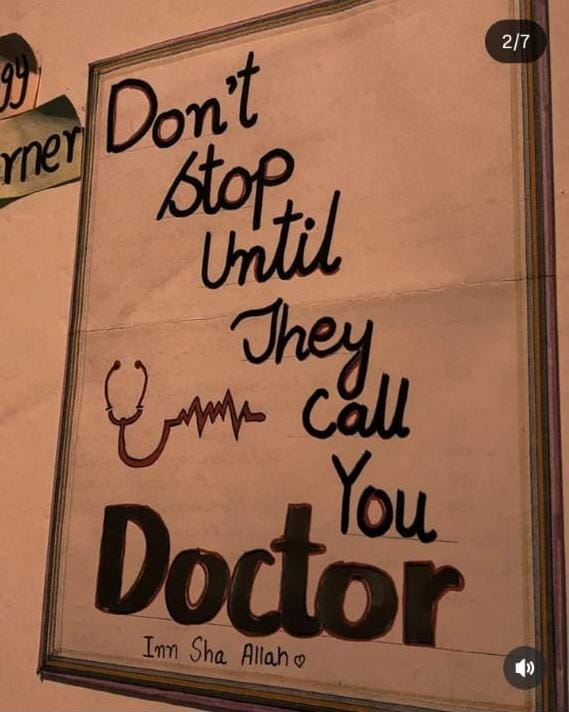 2/7
gy
rner
Don't
Stop
Until
They
Call
You
Doctor
Inn Sha Allah